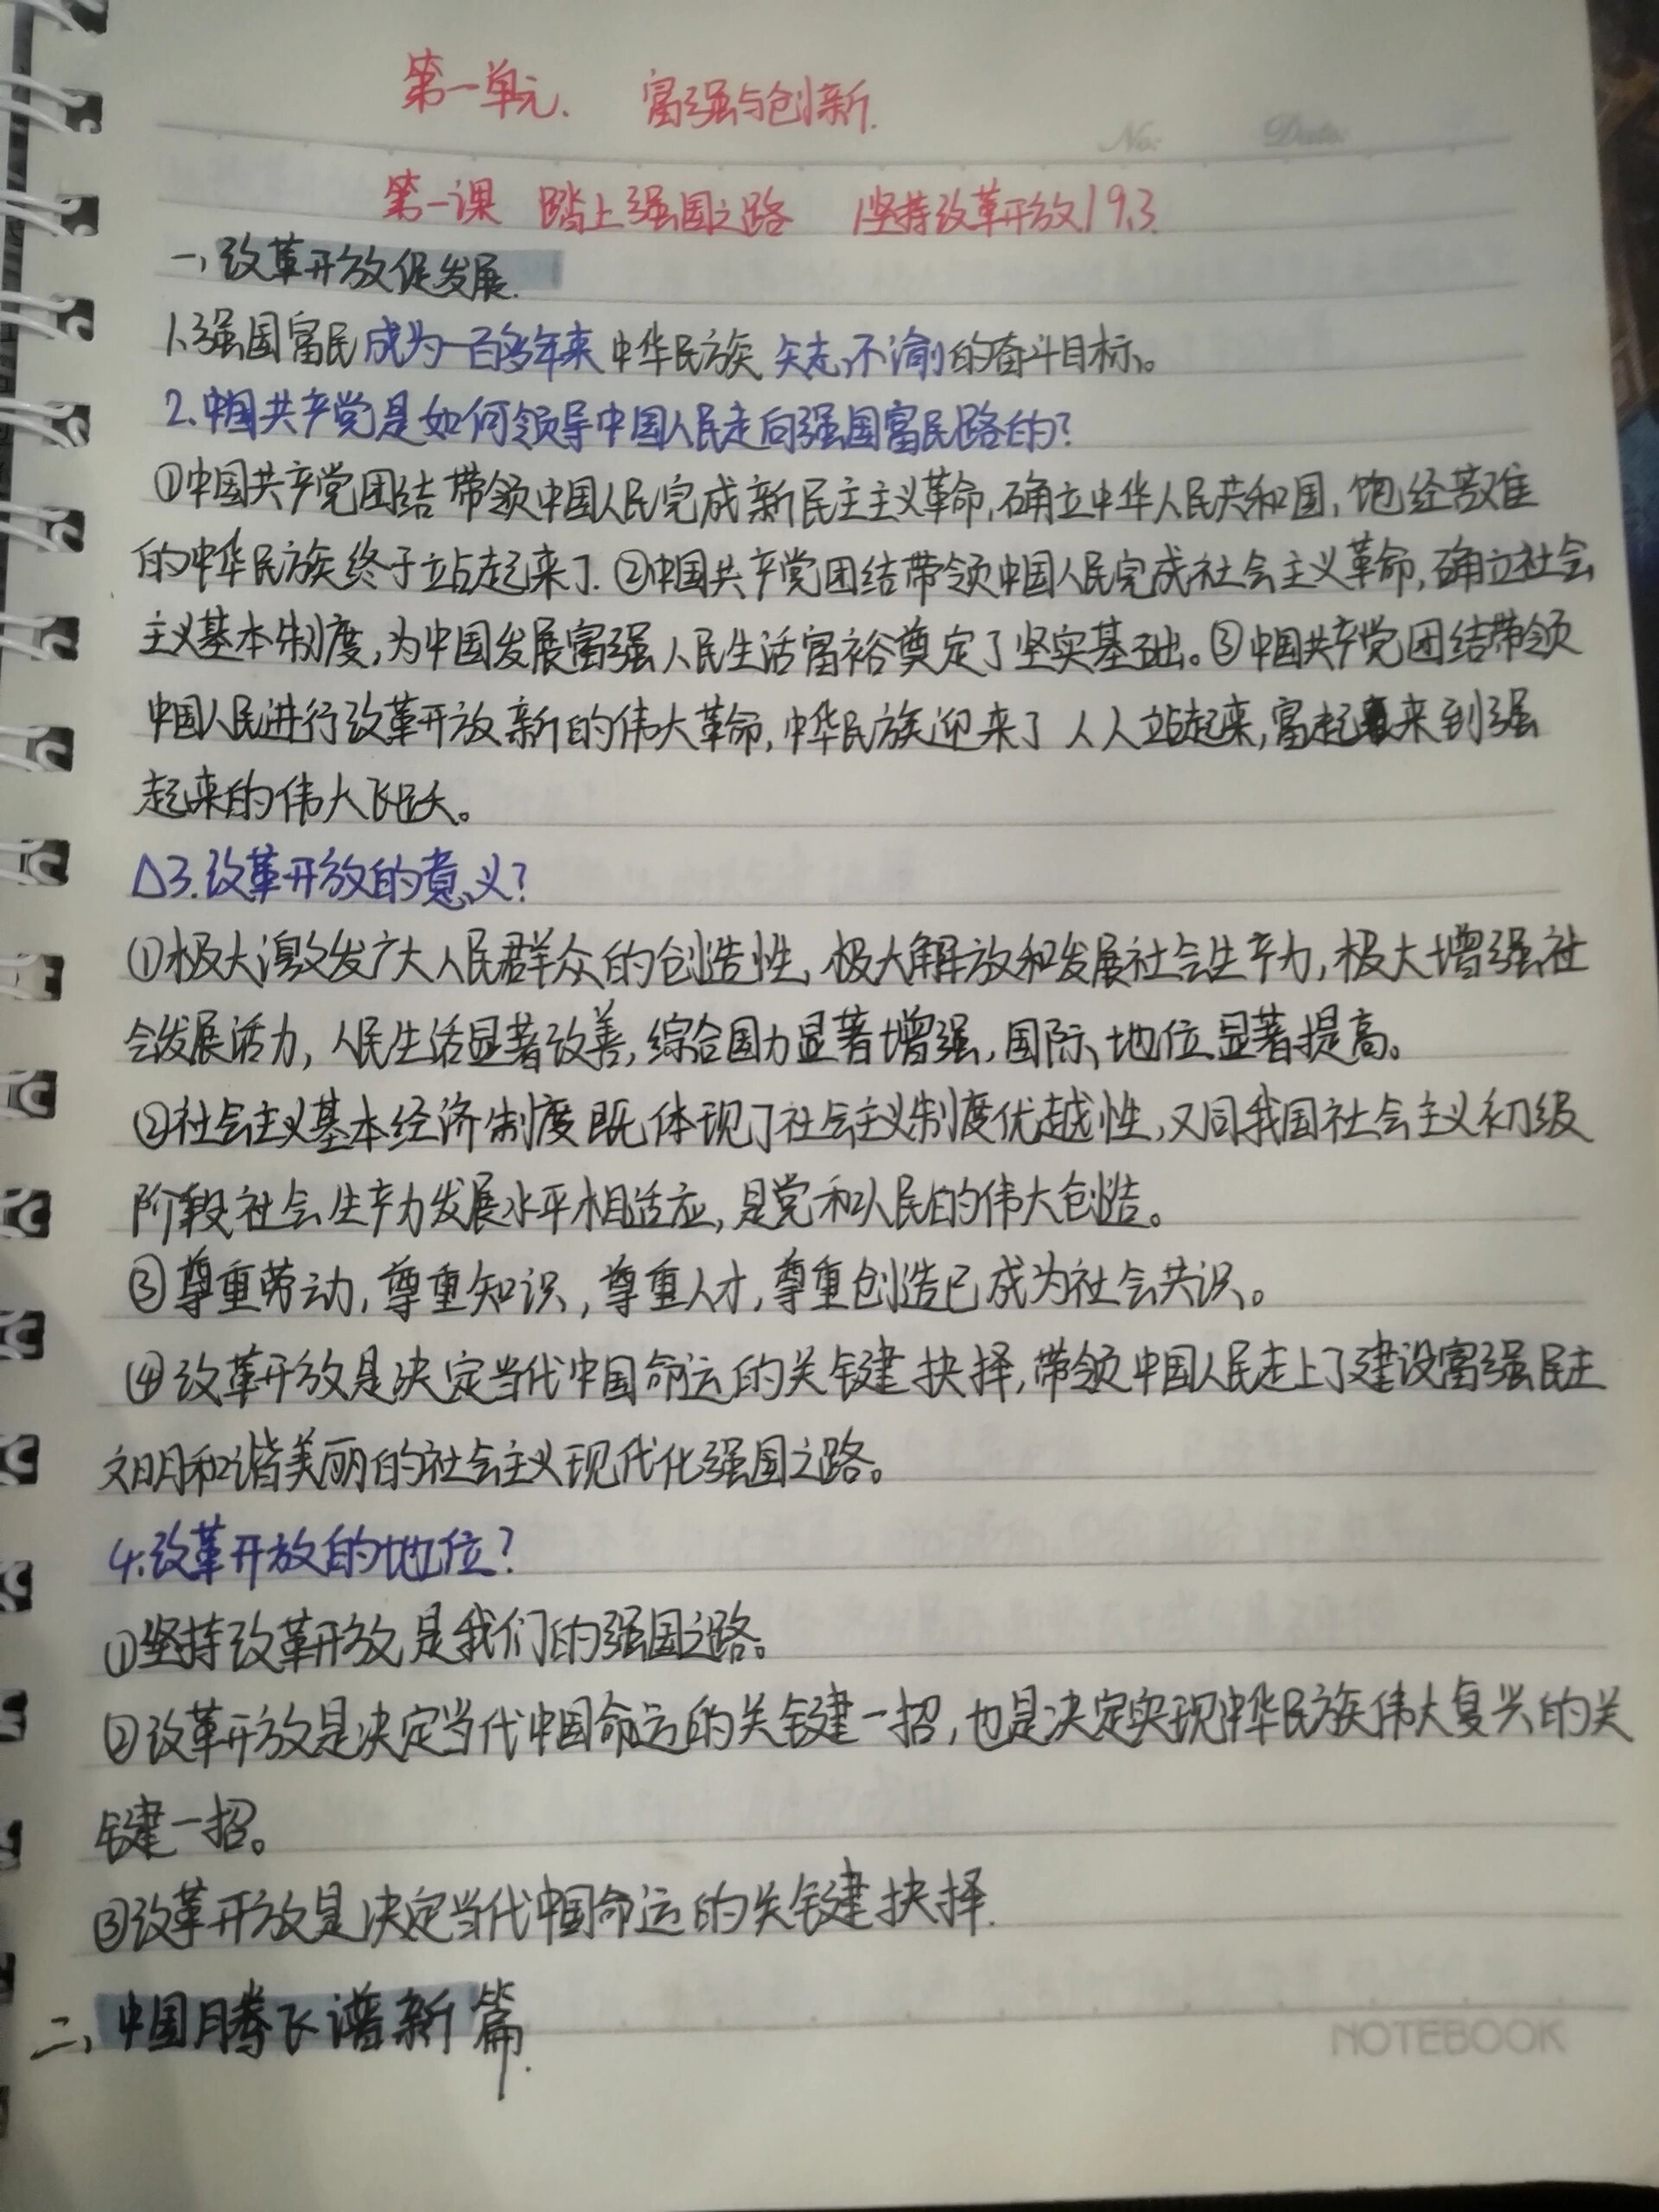 第一单元. 富强与创新.
No: Date:
第一课 踏上强国之路 坚持改革开放 19.3.
一、改革开放促发展.
1.强国富民成为一百多年来中华民族矢志不渝的奋斗目标。
2.中国共产党是如何领导中国人民走向强国富民路的?
①中国共产党团结带领中国人民完成新民主主义革命,确立中华人民共和国,饱经苦难
的中华民族终于站起来了.②中国共产党团结带领中国人民完成社会主义革命,确立社会
主义基本制度,为中国发展富强人民生活富裕奠定了坚实基础。③中国共产党团结带领
中国人民进行改革开放新的伟大革命,中华民族迎来了人人站起来,富起来到强
起来的伟大飞跃。
△3.改革开放的意义?
①极大激发广大人民群众的创造性,极大解放和发展社会生产力,极大增强社
会发展活力,人民生活显著改善,综合国力显著增强,国际地位显著提高。
②社会主义基本经济制度既体现了社会主义制度优越性,又同我国社会主义初级
阶段社会生产力发展水平相适应,是党和人民的伟大创造。
③尊重劳动,尊重知识,尊重人才,尊重创造已成为社会共识。
④改革开放是决定当代中国命运的关键抉择,带领中国人民走上了建设富强民主
文明和谐美丽的社会主义现代化强国之路。
4.改革开放的地位?
①坚持改革开放是我们的强国之路。
②改革开放是决定当代中国命运的关键一招,也是决定实现中华民族伟大复兴的关
键一招。
③改革开放是决定当代中国命运的关键抉择.
二、中国腾飞谱新篇.
NOTEBOOK